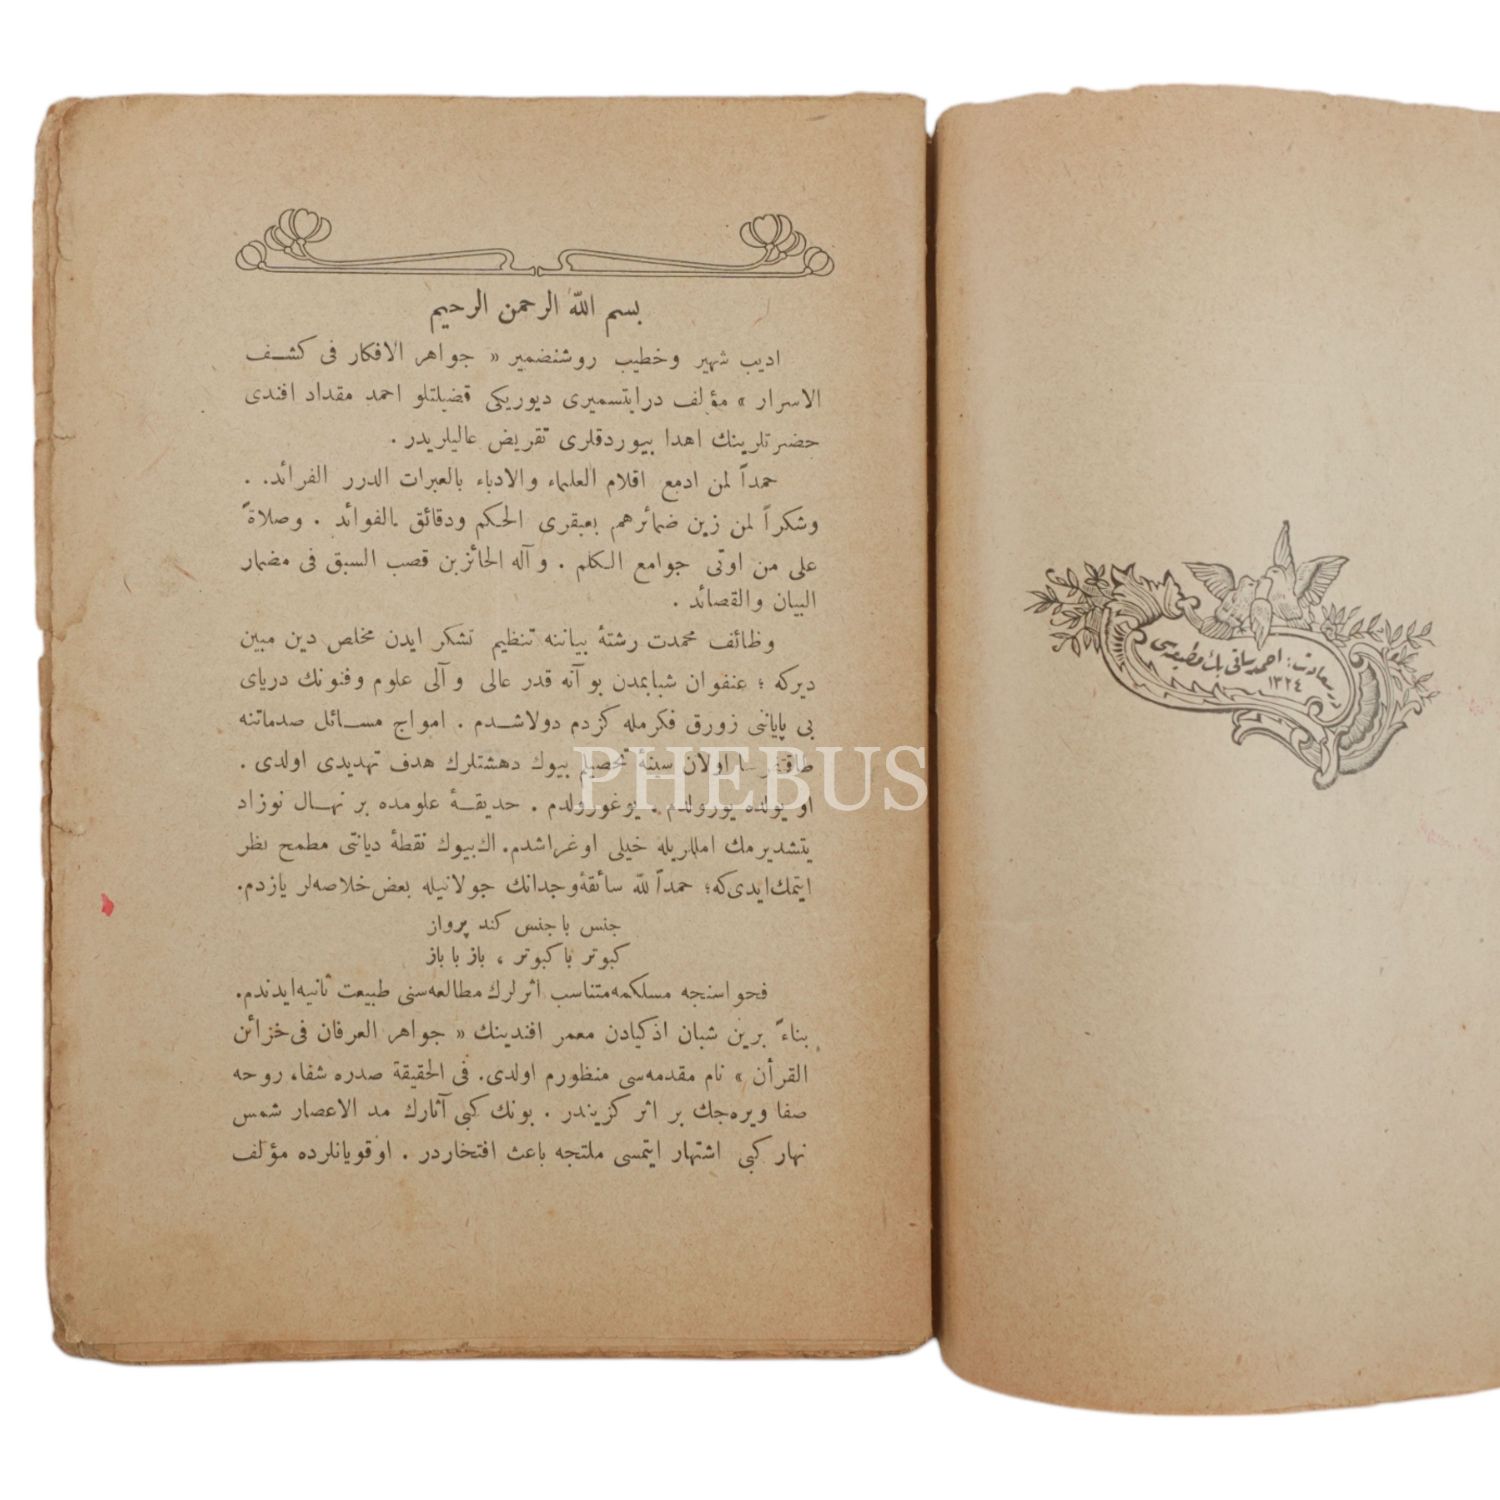 بسم الله الرحمن الرحيم
اديب شهير وخطيب روشنضمير « جواهر الافكار فى كشف
الاسرار » مؤلف درايتسميرى ديوريكى فضيلتلو احمد مقداد افندى
حضرتلرينك اهدا بيوردقلرى تقريض عاليلريدر .
حمداً لمن ادمع اقلام العلماء والادباء بالعبرات الدرر الفرائد . .
وشكراً لمن زين ضمائرهم بعبقرى الحكم ودقائق بالفوائد . وصلاةً
على من اوتى جوامع الكلم . وآله الحائزين قصب السبق فى مضمار
البيان والقصائد .
وظائف محمدت رشتۀ بياننه تنظيم تشكر ايدن مخلص دين مبين
ديركه ؛ عنفوان شبابمدن بو آنه قدر عالى وآلى علوم وفنونك درياى
بى پاياننى زورق فكرمله كزدم دولاشدم . امواج مسائل صدماتنه
اولان سنۀ تحصيلم بيوك دهشتلرك هدف تهديدى اولدى .
او يولده يورولدم . يوغورولدم . حديقۀ علومده بر نهال نوزاد
يتشديرمك امللريله خيلى اوغراشدم. اك بيوك نقطۀ ديانتى مطمح نظر
ايتمك ايدى كه؛ حمداً لله سائقۀ وجدانك جولانيله بعض خلاصه‌لر يازدم.
جنس با جنس كند پرواز
كبوتر با كبوتر ، باز با باز
فحواسنجه مسلكمه متناسب اثرلرك مطالعه‌سنى طبيعت ثانيه ايدندم.
بناءً برين شبان اذكيادن معمر افندينك « جواهر العرفان فى خزائن
القرأن » نام مقدمه‌سى منظورم اولدى. فى الحقيقة صدره شفا، روحه
صفا ويره‌جك بر اثر كزيندر . بونك كبى آثارك مد الاعصار شمس
نهار كبى اشتهار ايتمسى ملتجه باعث افتخاردر . اوقويانلرده مؤلف
در سعادت : احمد ساقى بك مطبعه‌سى
١٣٢٤
PHEBUS